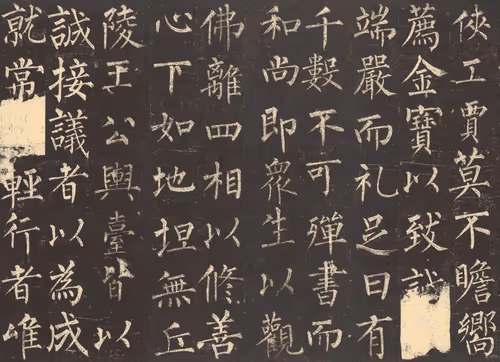 俠工賈莫不瞻嚮
薦金寶以致誠
端嚴而礼足日有
千數不可殫書而
和尚即衆生以觀
佛離四相以修善
心下如地坦無丘
陵王公輿臺皆以
誠接議者以為成
就常輕行者唯